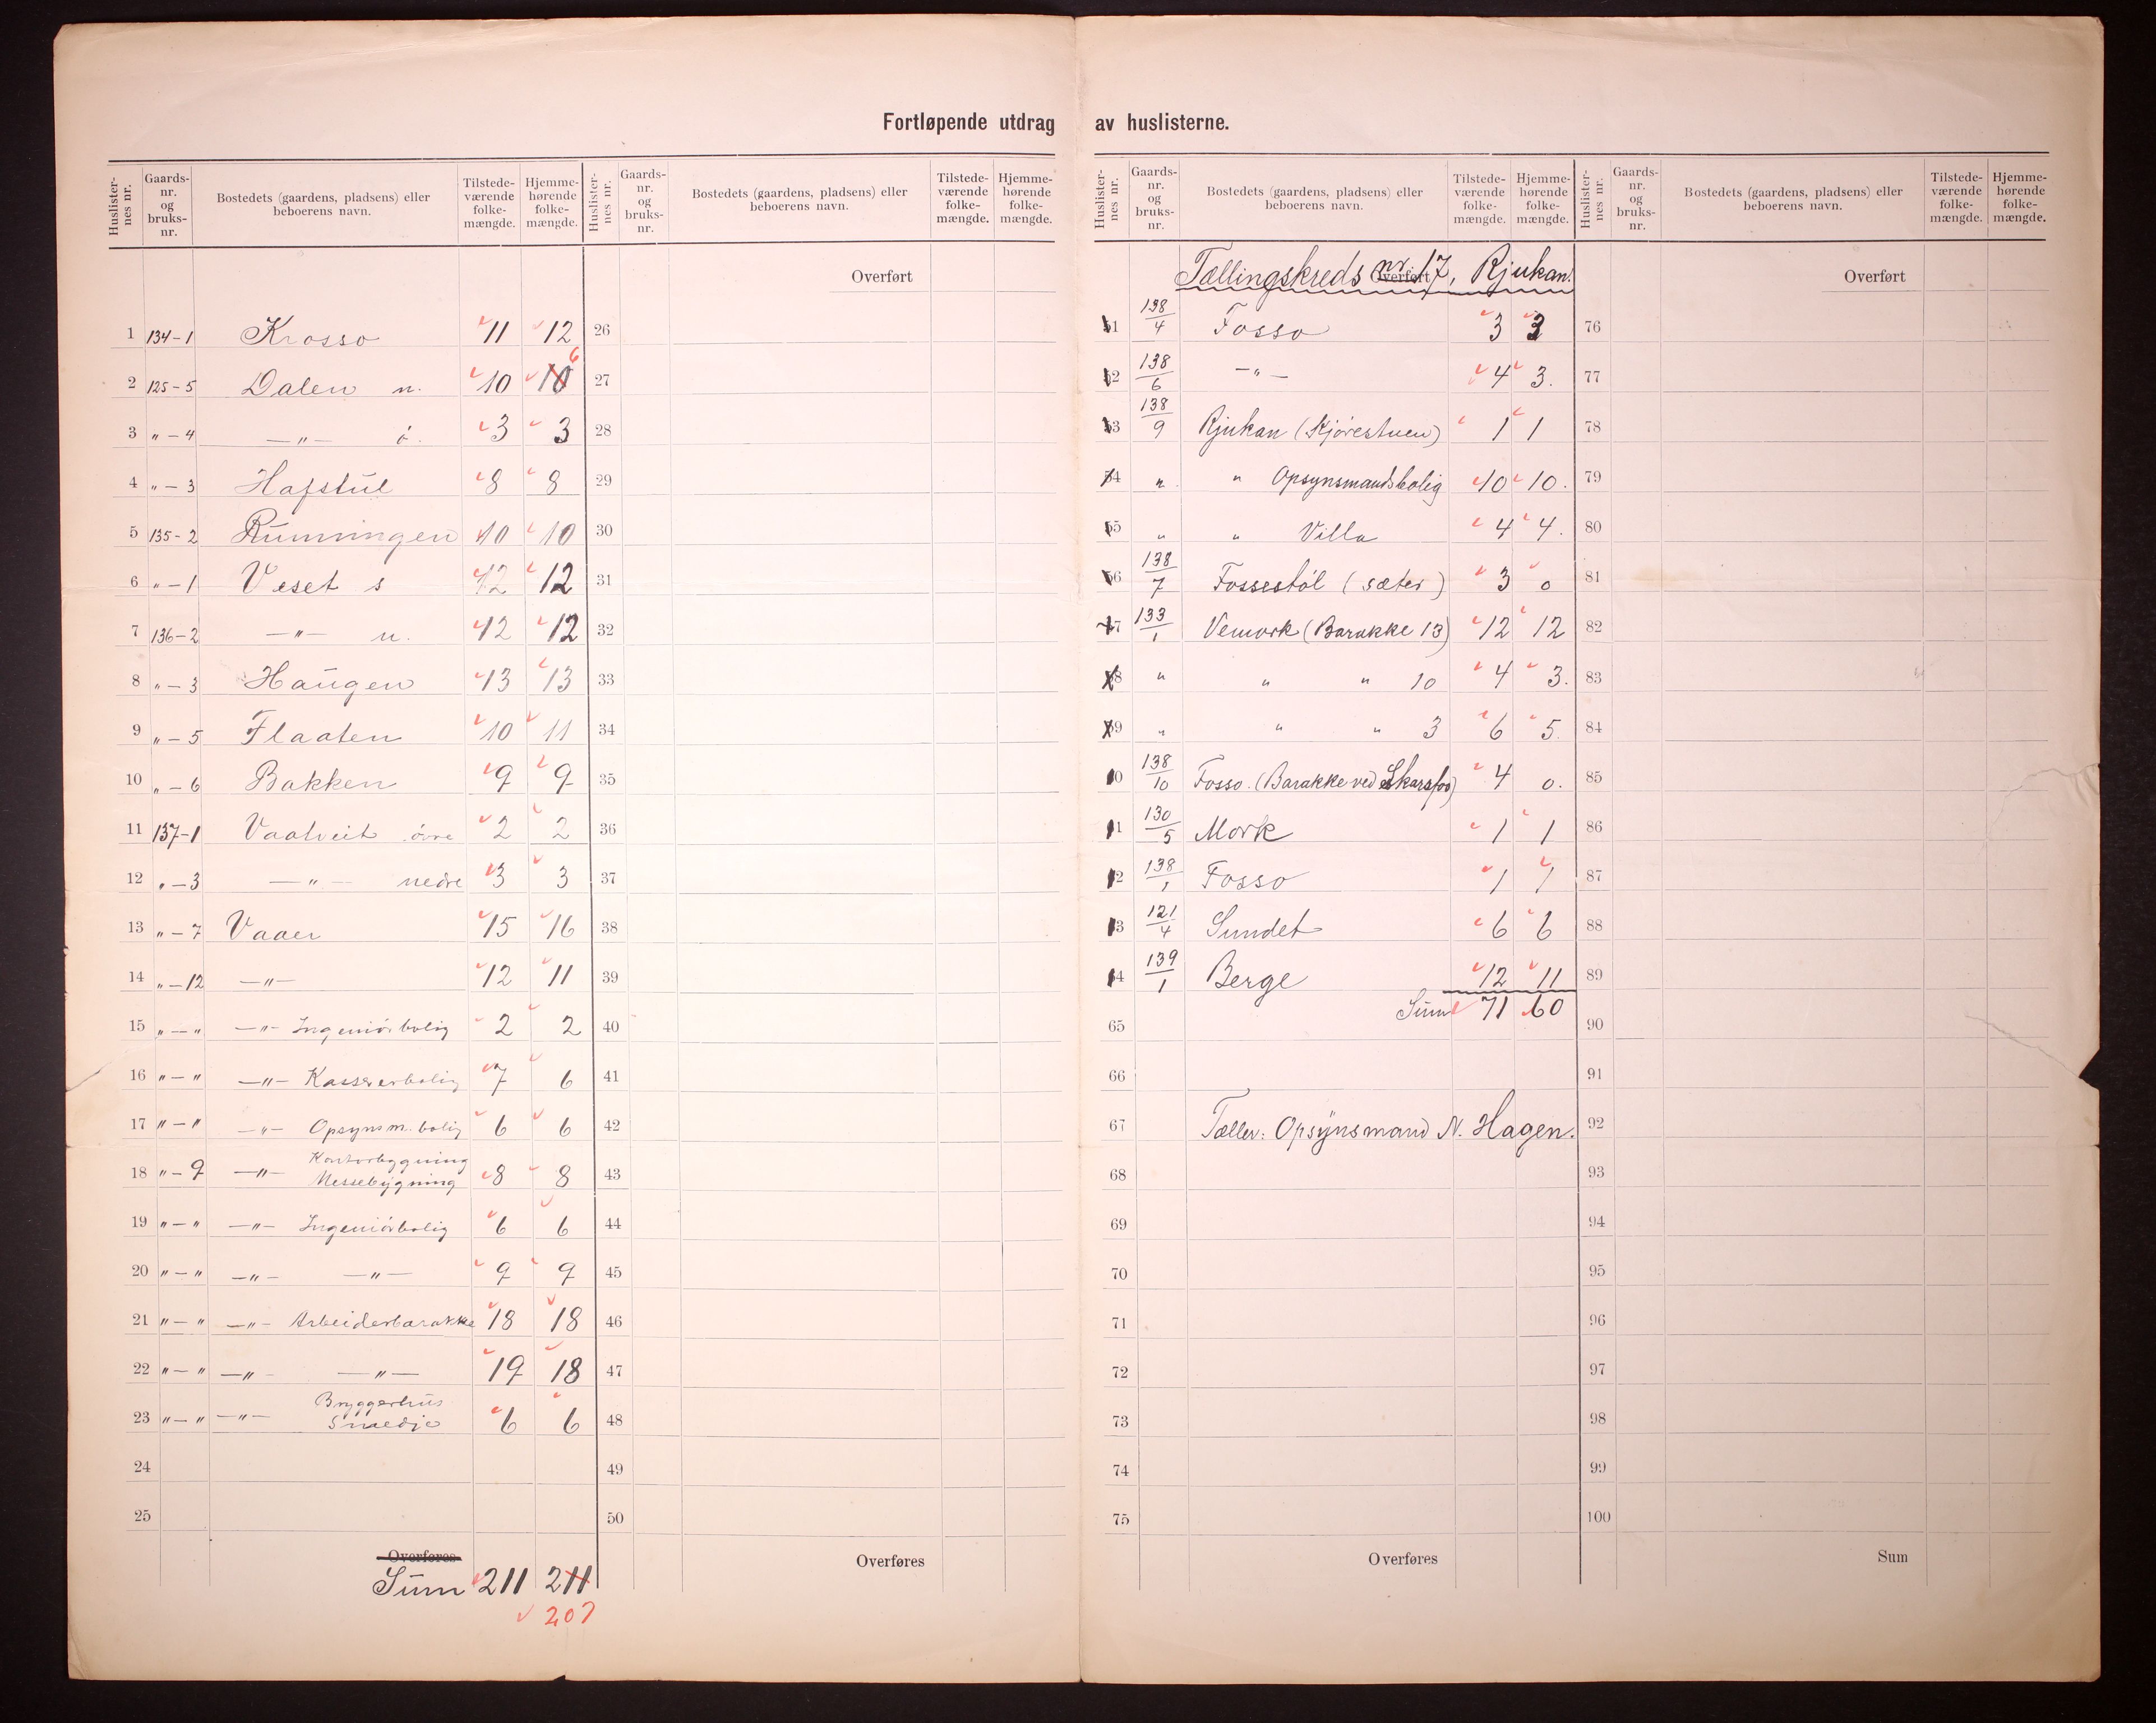 Fortløpende utdrag av huslisterne.
Huslisternes nr. Gaardsnr. og bruksnr. Bostedets (gaardens, pladsens) eller beboerens navn. Tilstedeværende folkemængde. Hjemmehørende folkemængde.
1 134-1 Krosso 11 12
2 125-5 Dalen n. 10 10 6
3 „ - 4 —„— ö. 3 3
4 „ - 3 Hafstul 8 8
5 135-2 Rumningen 10 10
6 „ - 1 Veset s 12 12
7 136-2 —„— n. 12 12
8 „ - 3 Haugen 13 13
9 „ - 5 Flaaten 10 11
10 „ - 6 Bakken 9 9
11 137-1 Vaatveit övre 2 2
12 „ - 3 —„— nedre 3 3
13 „ - 7 Vaaer 15 16
14 „ - 12 —„— 12 11
15 „ - „ —„— Ingeniörbolig 2 2
16 „ - „ —„— Kassererbolig 7 6
17 „ - „ —„— Opsynsm. bolig 6 6
18 „ - 9 —„— Kontorbygning
Messebygning 8 8
19 „ - „ —„— Ingeniörbolig 6 6
20 „ - „ —„— —„— 9 9
21 „ - „ —„— Arbeiderbarakke 18 18
22 „ - „ —„— —„— 19 18
23 „ - „ —„— Bryggerhus
Smedje 6 6
24
25
Overføres
Sum 211 211
207
Huslisternes nr. Gaardsnr. og bruksnr. Bostedets (gaardens, pladsens) eller beboerens navn. Tilstedeværende folkemængde. Hjemmehørende folkemængde.
Overført
26
27
28
29
30
31
32
33
34
35
36
37
38
39
40
41
42
43
44
45
46
47
48
49
50
Overføres
Huslisternes nr. Gaardsnr. og bruksnr. Bostedets (gaardens, pladsens) eller beboerens navn. Tilstedeværende folkemængde. Hjemmehørende folkemængde.
Overført
Tællingskreds nr. 17, Rjukan.
1 138/4 Fosso 3 3
2 138/6 —„— 4 3.
3 138/9 Rjukan (Kjörestuen) 1 1
4 „ „ Opsynsmandsbolig 10 10.
5 „ „ Villa 4 4.
6 138/7 Fossestöl (sæter) 3 0
7 133/1 Vemork (Barakke 13) 12 12
8 „ „ „ 10 4 3.
9 „ „ „ 3 6 5.
10 138/10 Fosso. (Barakke ved Skarsfos) 4 0.
11 130/5 Mork 1 1
12 138/1 Fosso 1 1
13 121/4 Sundet 6 6
14 139/1 Berge 12 11
Sum 71 60
65
66
67 Tæller: Opsynsmand N. Hagen.
68
69
70
71
72
73
74
75
Overføres
Huslisternes nr. Gaardsnr. og bruksnr. Bostedets (gaardens, pladsens) eller beboerens navn. Tilstedeværende folkemængde. Hjemmehørende folkemængde.
Overført
76
77
78
79
80
81
82
83
84
85
86
87
88
89
90
91
92
93
94
95
96
97
98
99
100
Sum